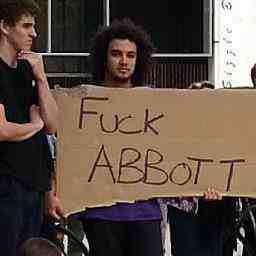 Fuck
ABBOTT